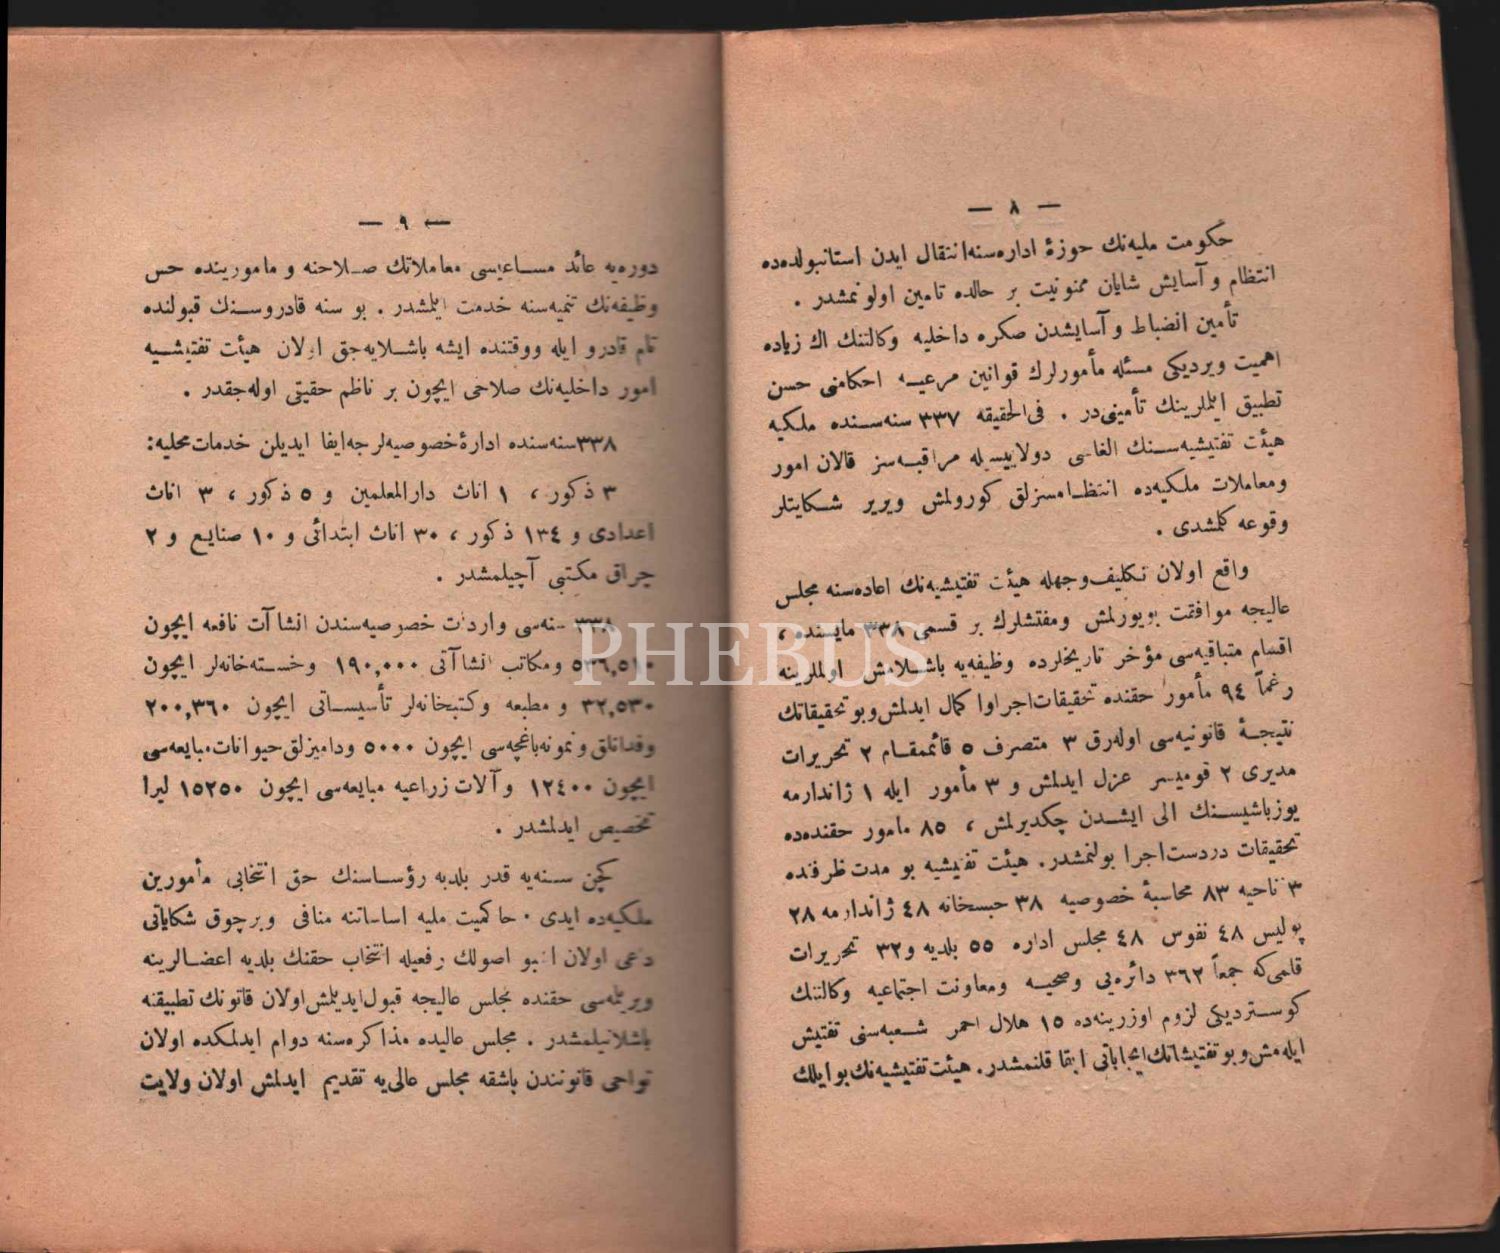 — ٨ —
حكومت مليه‌نك حوزهٔ اداره‌سنه انتقال ايدن استانبولده‌ده
انتظام و آسايش شايان ممنونيت بر حالده تامين اولونمشدر .
تأمين انضباط و آسايشدن صكره داخليه وكالتنك اك زياده
اهميت ويرديكى مسئله مأمورلرك قوانين مرعيه احكامنى حسن
تطبيق ايتملرينك تأمينى‌در . فى‌الحقيقه ٣٣٧ سنه‌سنده ملكيه
هيئت تفتيشيه‌سنك الغاسى دولاييسيله مراقبه‌سز قالان امور
ومعاملات ملكيه‌ده انتظامسزلق كورولمش ويرير شكايتلر
وقوعه كلمشدى .
واقع اولان تكليف‌وجهله هيئت تفتيشيه‌نك اعاده‌سنه مجلس
عاليجه موافقت بويورلمش ومفتشلرك بر قسمى ٣٣٨ مايسنده ،
اقسام متباقيه‌سى مؤخر تاريخلرده وظيفه‌يه باشلامش اولملرينه
رغماً ٩٤ مأمور حقنده تحقيقات‌اجراو اكمال ايدلمش‌وبو تحقيقاتك
نتيجهٔ قانونيه‌سى اوله‌رق ٣ متصرف ٥ قائممقام ٢ تحريرات
مديرى ٢ قوميسر عزل ايدلمش و ٣ مأمور ايله ١ ژاندارمه
يوزباشيسنك الى ايشدن چكديرلمش ، ٨٥ مامور حقنده‌ده
تحقيقات دردست‌اجرا بولنمشدر. هيئت تفتيشيه بو مدت ظرفنده
٣ ناحيه ٨٣ محاسبهٔ خصوصيه ٣٨ حبسخانه ٤٨ ژاندارمه ٢٨
پوليس ٤٨ نفوس ٤٨ مجلس اداره ٥٥ بلديه و٣٢ تحريرات
قلمى‌كه جمعاً ٣٦٢ دائره‌يى وصحيه ومعاونت اجتماعيه وكالتنك
كوسترديكى لزوم اوزرينه‌ده ١٥ هلال احمر شعبه‌سنى تفتيش
ايله‌مش‌وبو تفتيشاتك‌ايجاباتى ايفا قلنمشدر. هيئت تفتيشيه‌نك بو ايللك
— ٩ —
دوره‌يه عائد مساعيسى معاملاتك صلاحنه و مامورينده حس
وظيفه‌نك تنميه‌سنه خدمت ايلمشدر . بو سنه قادروسنك قبولنده
تام قادرو ايله ووقتنده ايشه باشلايه‌جق اولان هيئت تفتيشيه
امور داخليه‌نك صلاحى ايچون بر ناظم حقيقى اوله‌جقدر .
٣٣٨سنه‌سنده ادارهٔ خصوصيه‌لرجه‌ايفا ايديلن خدمات محليه:
٣ ذكور ، ١ اناث دارالمعلمين و ٥ ذكور ، ٣ اناث
اعدادى و ١٣٤ ذكور ، ٣٠ اناث ابتدائى و ١٠ صنايع و ٢
چراق مكتبى آچيلمشدر .
٣٣٨ سنه‌سى واردات خصوصيه‌سندن انشاآت نافعه ايچون
٥٣٦,٥١٠ ومكاتب انشاآتى ١٩٠,٠٠٠ وخسته‌خانه‌لر ايچون
٣٢,٥٣٠ و مطبعه وكتبخانه‌لر تأسيساتى ايچون ٢٠٠,٣٦٠
وفدانلق ونمونه‌باغچه‌سى ايچون ٥٠٠٠ ودامیزلق‌حيوانات‌مبايعه‌سى
ايچون ١٢٤٠٠ وآلات زراعيه مبايعه‌سى ايچون ١٥٢٥٠ ليرا
تخصيص ايدلمشدر .
كچن سنه‌يه قدر بلديه رؤساسنك حق انتخابى مأمورين
ملكيه‌ده ايدى . حاكميت مليه اساساتنه منافى وبرچوق شكاياتى
داعى اولان اشبو اصولك رفعيله انتخاب حقنك بلديه اعضالرينه
ويريلمه‌سى حقنده مجلس عاليجه قبول‌ايديلمش‌اولان قانونك تطبيقنه
باشلانيلمشدر . مجلس عاليده مذاكره‌سنه دوام ايدلمكده اولان
نواحى قانونندن باشقه مجلس عالى‌يه تقديم ايدلمش اولان ولايت
PHEBUS